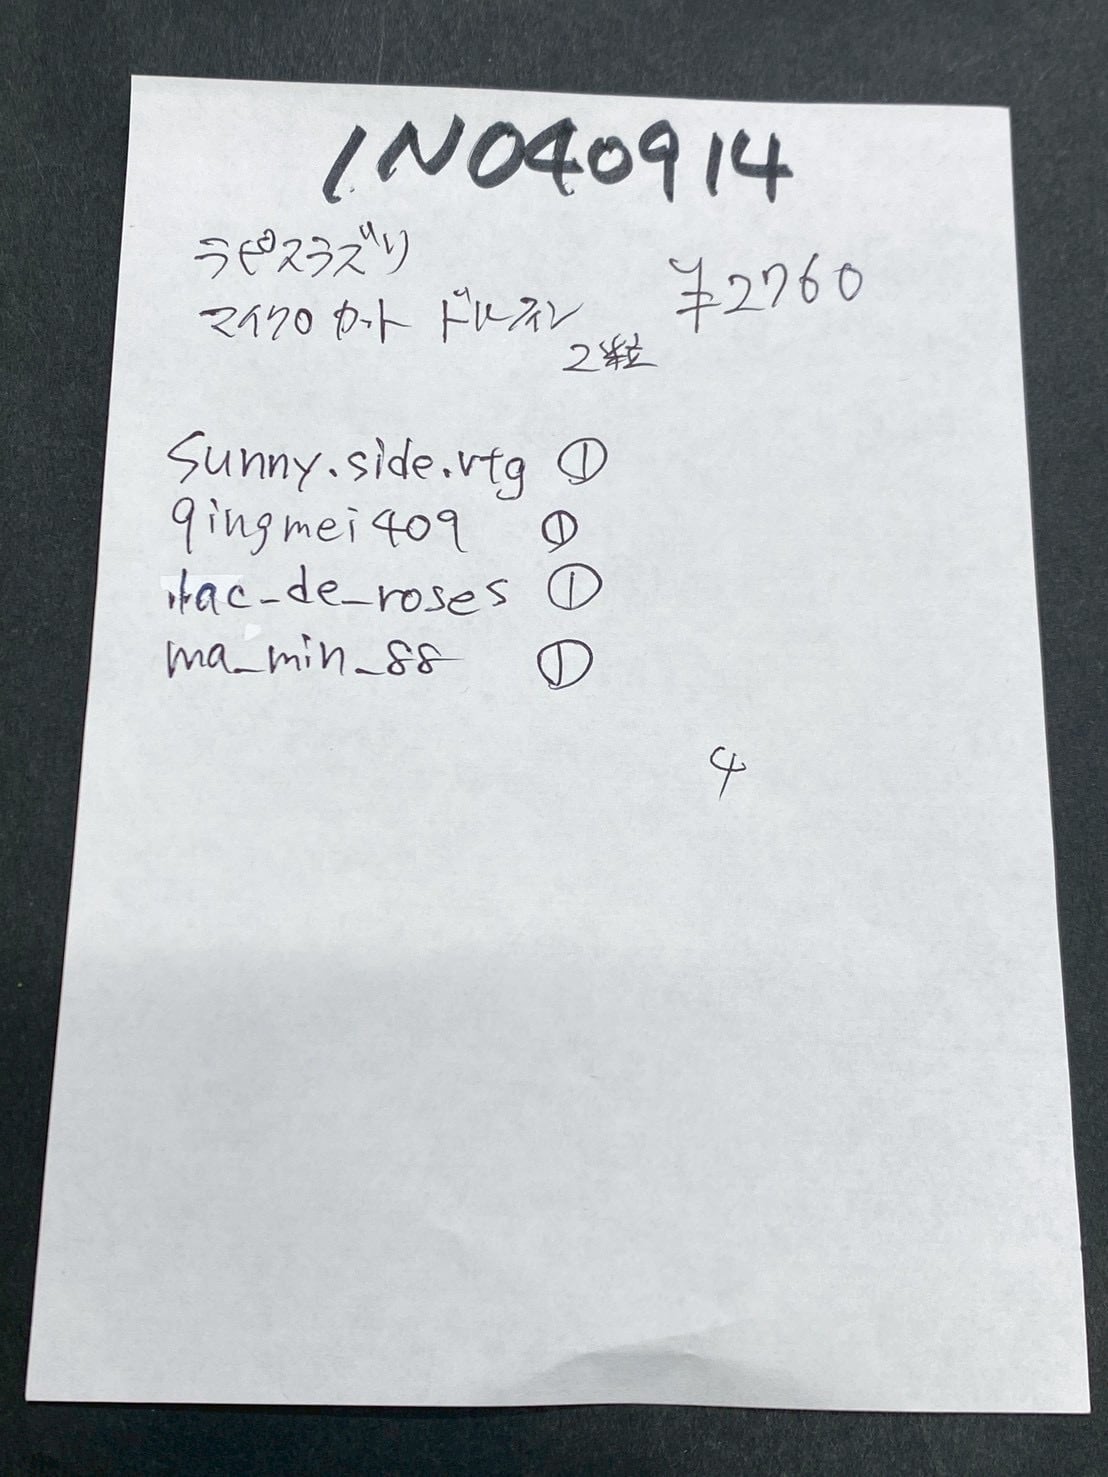 INO40914
ラピスラズリ
マイクロカット ドルフィン ¥2760
2粒
Sunny.side.vtg ①
qingmei409 ①
lac_de_roses ①
ma_min_88 ①
4